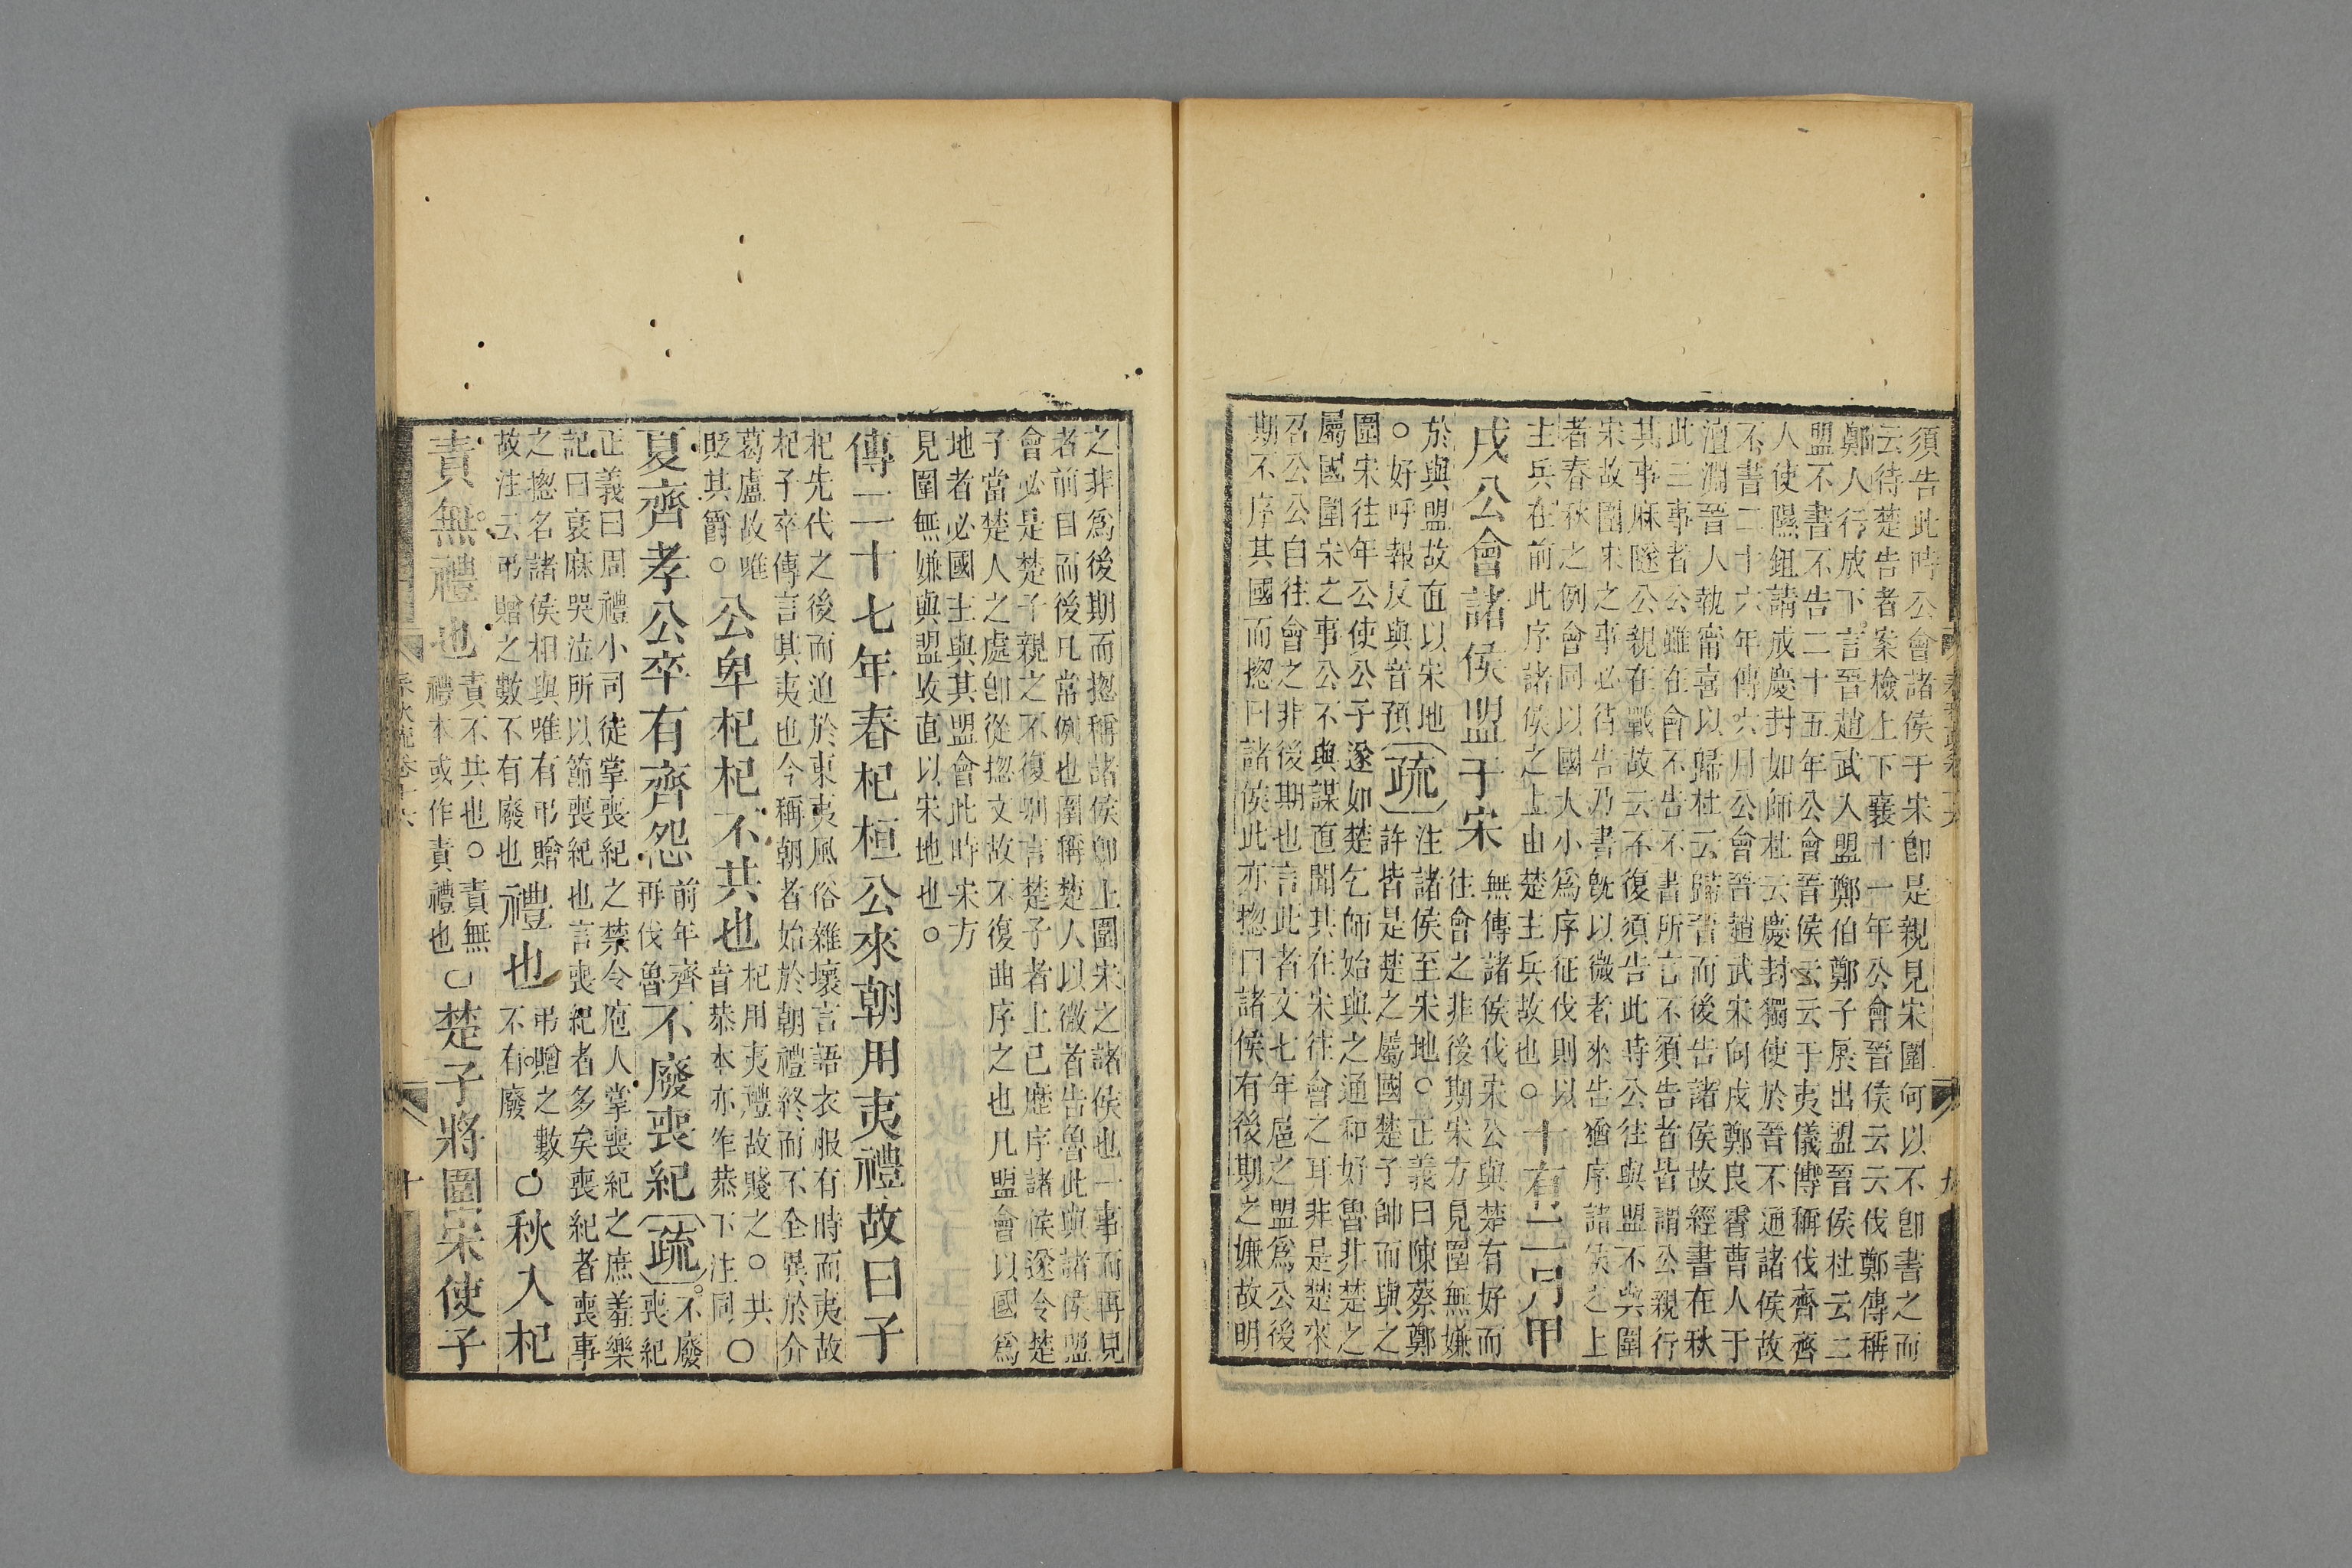 須告此時公會諸侯于宋卽是親見宋圍何以不卽書之而
云待楚告者案檢上下襄十一年公會晉侯云云伐鄭傳稱
鄭人行成下言晉趙武入盟鄭伯鄭子展出盟晉侯杜云二
盟不書不告二十五年公會晉侯云云于夷儀傳稱伐齊齊
人使隰鉏請成慶封如師杜云慶封獨使於晉不通諸侯故
不書二十六年傳六月公會晉趙武宋向戌鄭良霄曹人于
澶淵晉人執甯喜以歸杜云歸晉而後告諸侯故經書在秋
此三事者公雖在會不告不書所言不須告者皆謂公親行
其事麻隧公親在戰故云不復須告此時公往與盟不與圍
宋故圍宋之事必待告乃書旣以微者來告猶序諸侯之上
者春秋之例會同以國大小爲序征伐則以
主兵在前此序諸侯之上由楚主兵故也○十有二月甲
戌公會諸侯盟于宋
無傳諸侯伐宋公與楚有好而
往會之非後期宋方見圍無嫌
於與盟故直以宋地
○好呼報反與音預
疏
注諸侯至宋地○正義曰陳蔡鄭
許皆是楚之屬國楚子帥而與之
圍宋往年公使公子遂如楚乞師始與之通和好魯非楚之
屬國圍宋之事公不與謀直聞其在宋往會之耳非是楚來
召公公自往會之非後期也言此者文七年扈之盟爲公後
期不序其國而揔曰諸侯此亦揔曰諸侯有後期之嫌故明
之非爲後期而揔稱諸侯卽上圍宋之諸侯也一事而再見
者前目而後凡常例也圍稱楚人以微者告魯此與諸侯盟
會必是楚子親之不復別言楚子者上已歷序諸侯遂令楚
子當楚人之處卽從揔文故不復曲序之也凡盟會以國爲
地者必國主與其盟會此時宋方
見圍無嫌與盟故直以宋地也○
傳二十七年春杞桓公來朝用夷禮故曰子
杞先代之後而迫於東夷風俗雜壞言語衣服有時而夷故
杞子卒傳言其夷也今稱朝者始於朝禮終而不全異於介
葛盧故唯
貶其爵○
公卑杞杞不共也
杞用夷禮故賤之○共
音恭本亦作恭下注同
○
夏齊孝公卒有齊怨
前年齊
再伐魯
不廢喪紀
疏
不廢
喪紀
正義曰周禮小司徒掌喪紀之禁令庖人掌喪紀之庶羞樂
記曰衰麻哭泣所以節喪紀也言喪紀者多矣喪紀者喪事
之揔名諸侯相與唯有弔贈
故注云弔贈之數不有廢也
禮也
弔贈之數
不有廢
○秋入杞
責無禮也
責不共也○責無
禮本或作責禮也
○楚子將圍宋使子
春秋疏卷十六
九
十